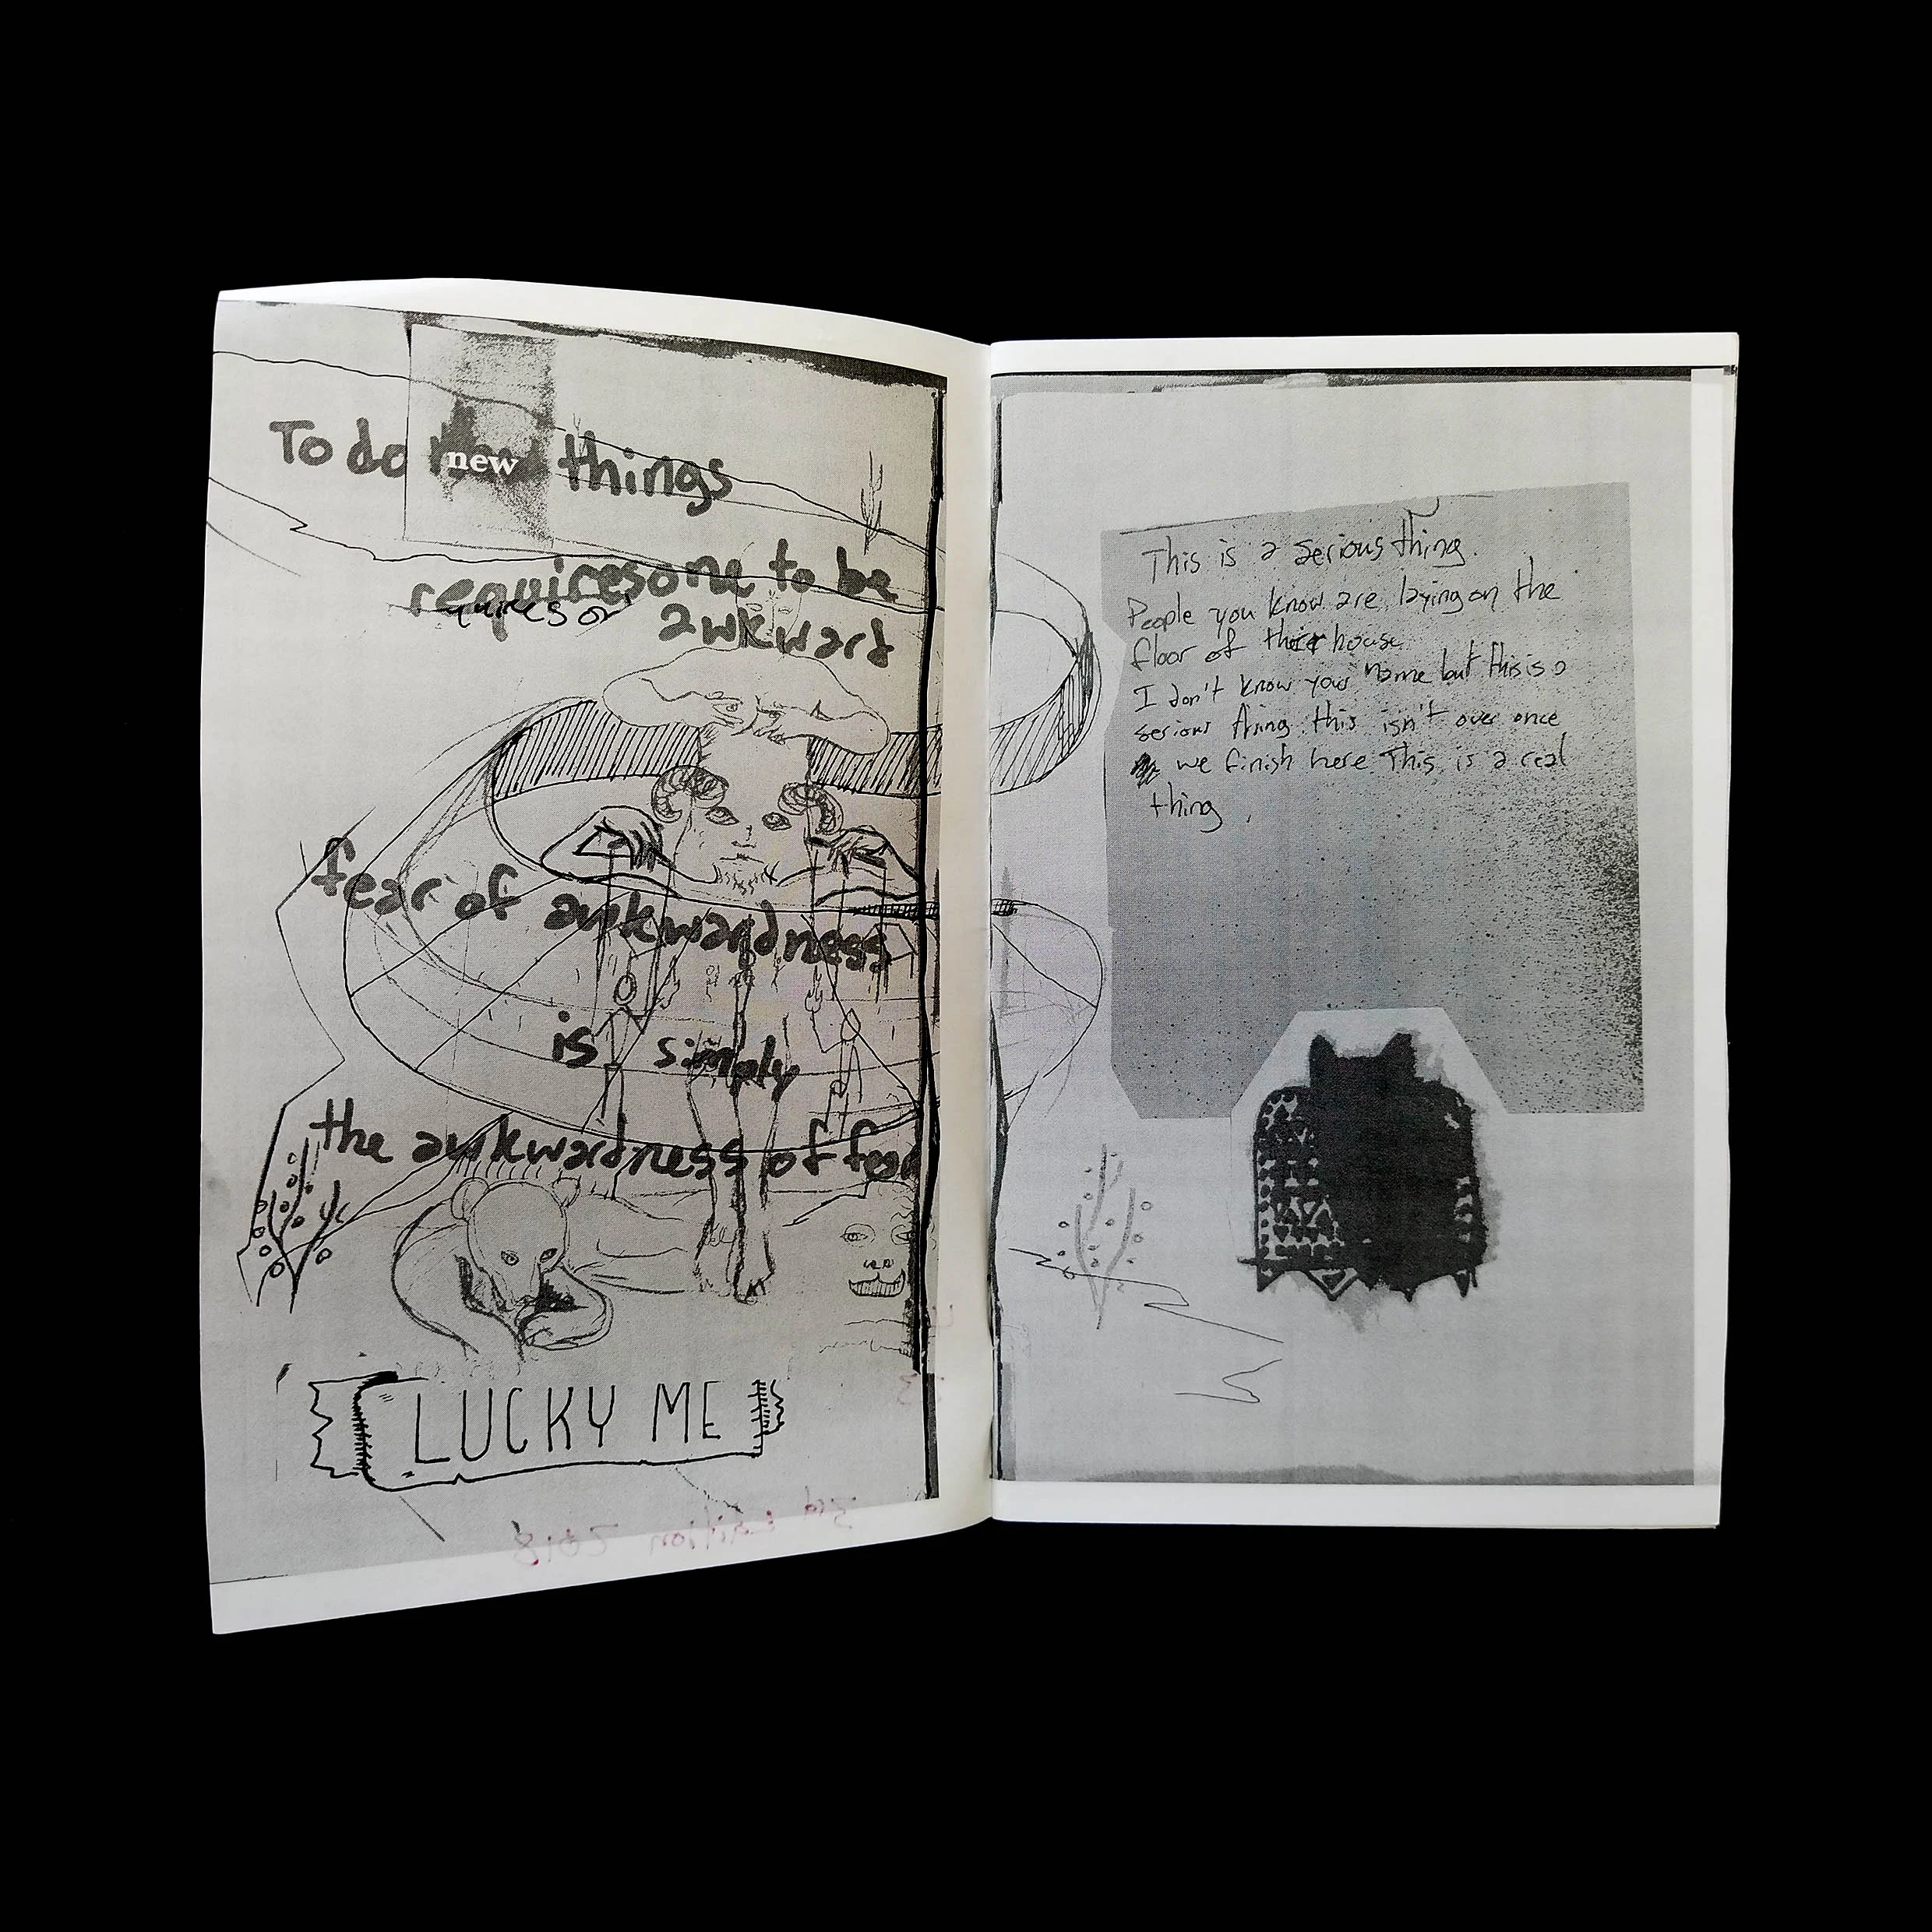 To do new things
requires one to be
quires on
awkward
fear of awkwardness
is simply
the awkwardness of fear
LUCKY ME
3rd edition 2018
This is a serious thing.
People you know are laying on the
floor of their house
I don't know your name but this is a
serious thing. this isn't over once
we finish here This is a real
thing.